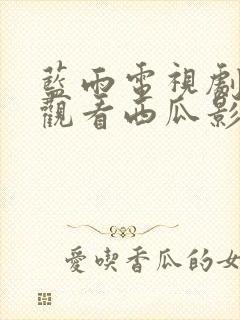 藍雨電視劇
觀看西瓜影
愛喫香瓜的女